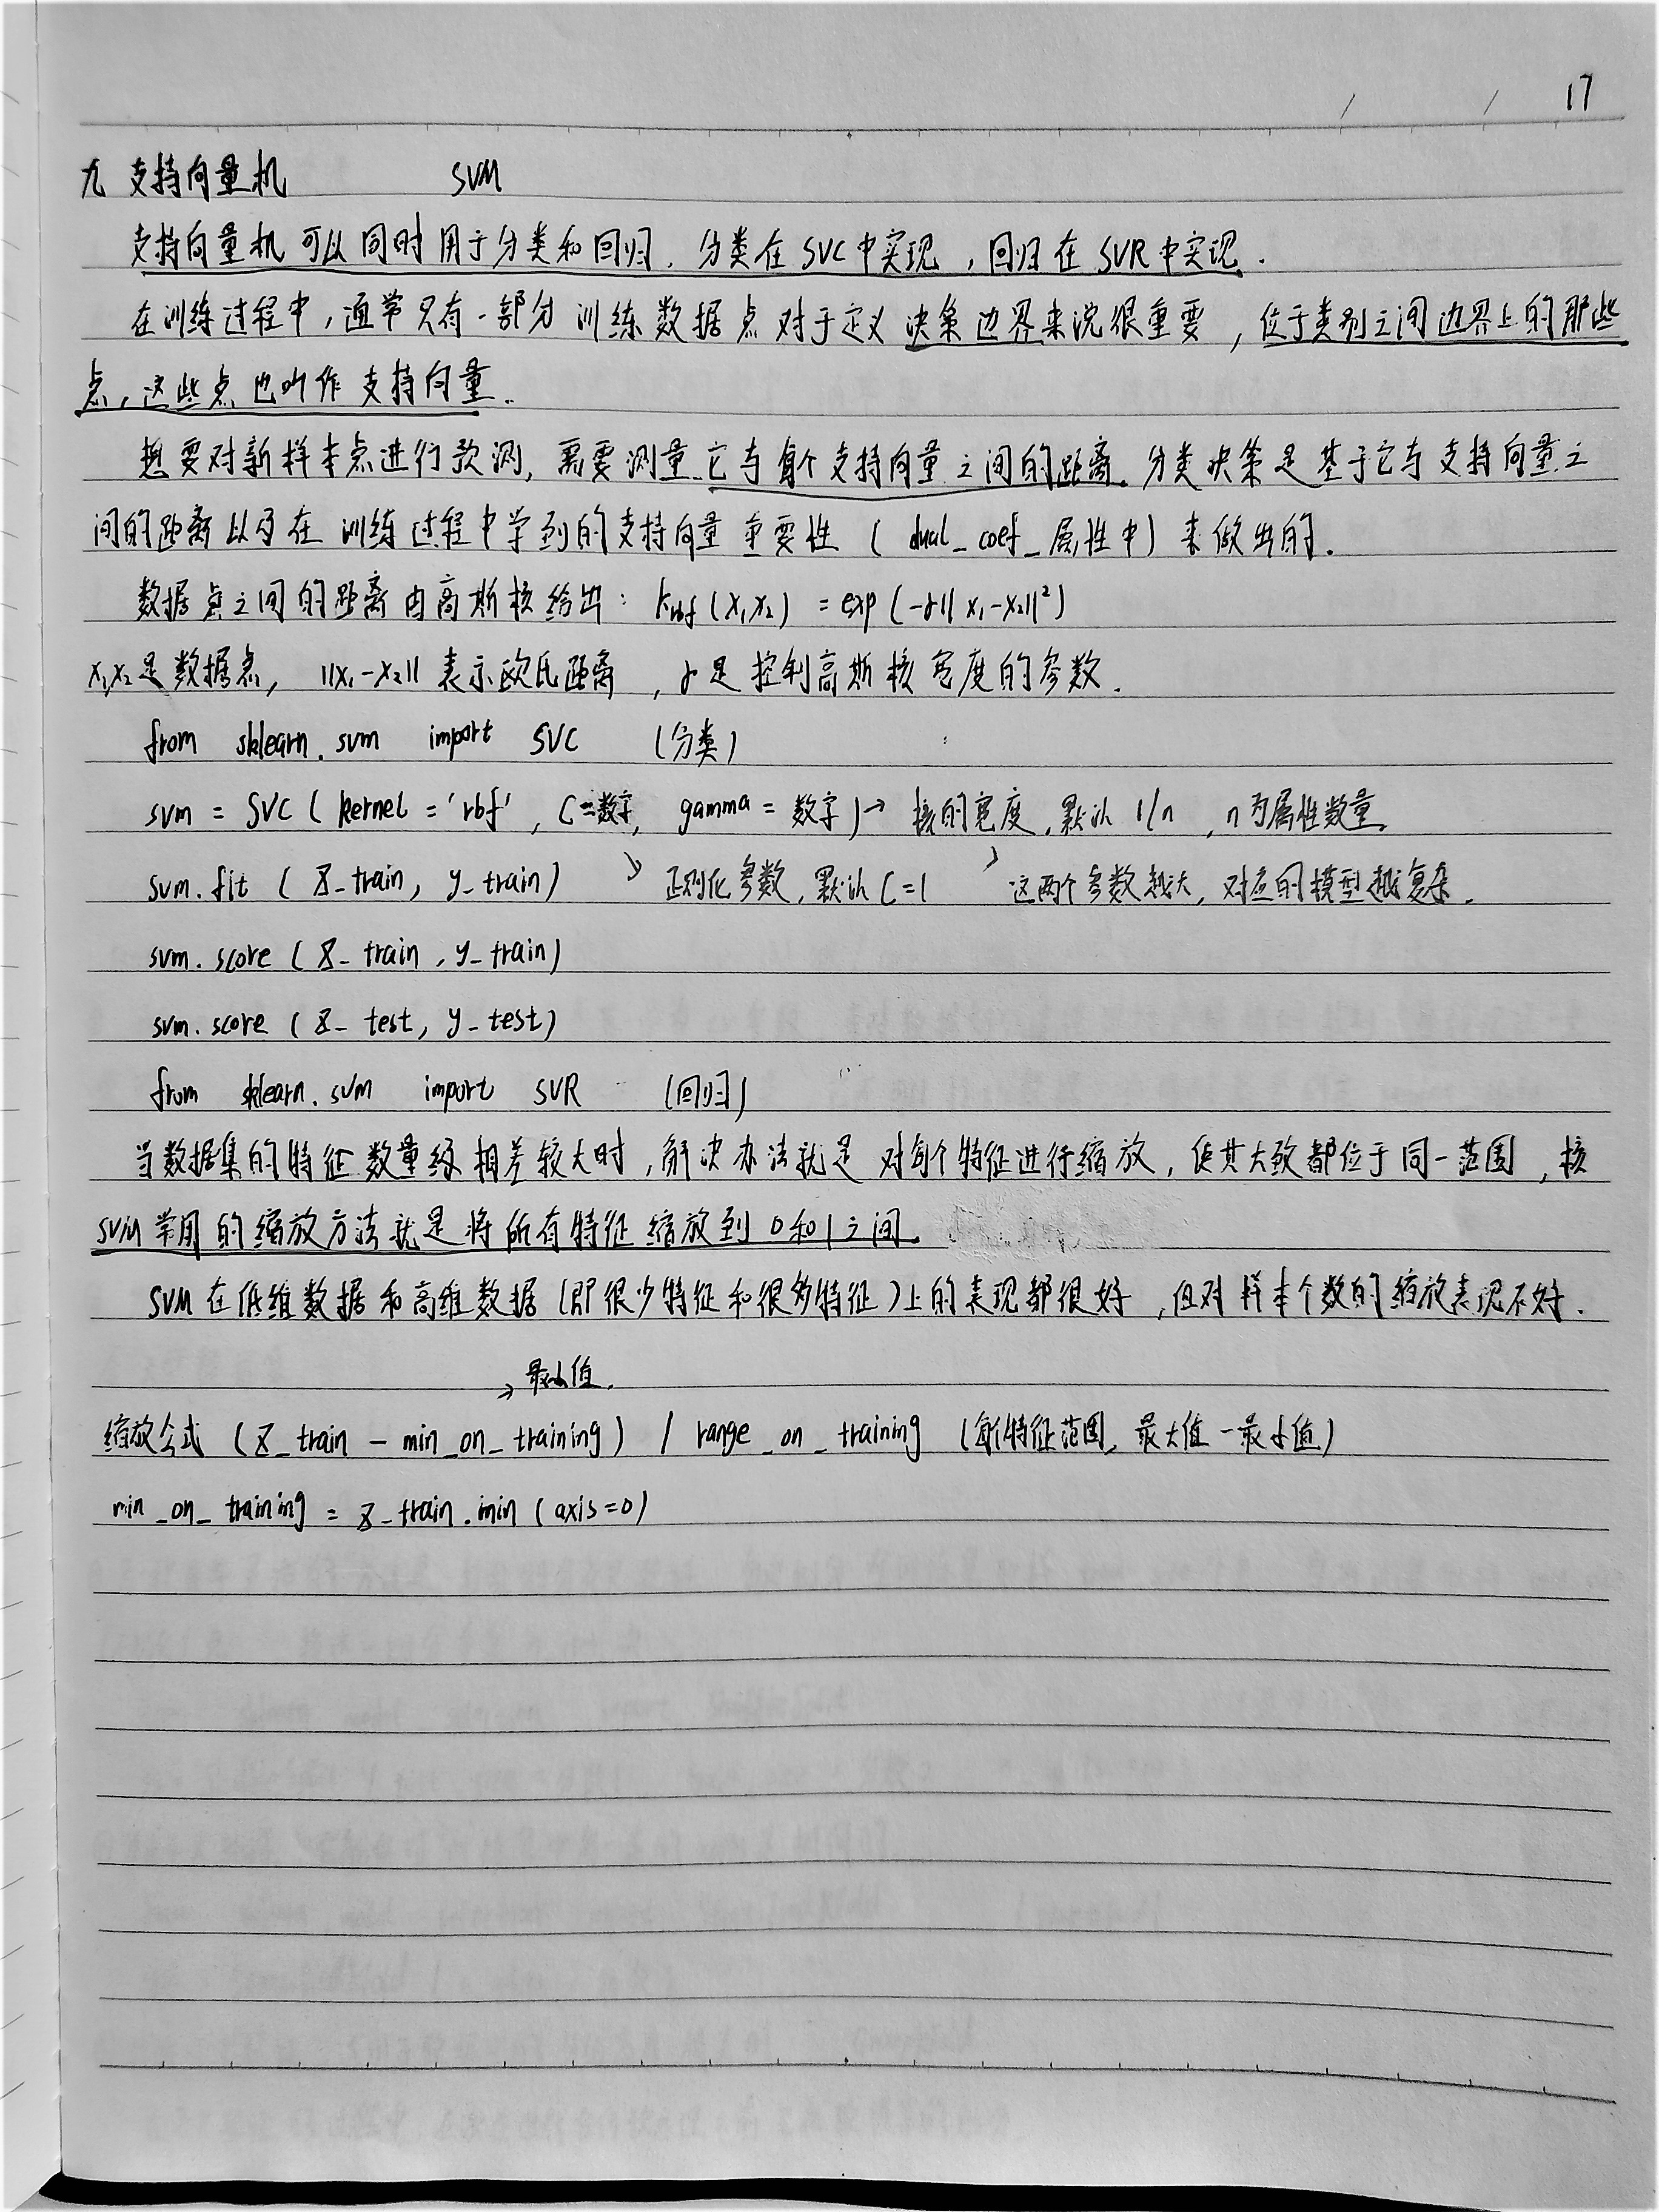 17
九 支持向量机 SVM
支持向量机可以同时用于分类和回归. 分类在SVC中实现,回归在SVR中实现.
在训练过程中,通常只有一部分训练数据点对于定义决策边界来说很重要,位于类别之间边界上的那些
点,这些点也叫作支持向量.
想要对新样本点进行预测,需要测量它与每个支持向量之间的距离.分类决策是基于它与支持向量之
间的距离以及在训练过程中学到的支持向量重要性(dual_coef_属性中)来做出的.
数据点之间的距离由高斯核给出: krbf(x₁,x₂) = exp(-γ||x₁-x₂||²)
x₁,x₂是数据点, ||x₁-x₂||表示欧氏距离,γ是控制高斯核宽度的参数.
from sklearn.svm import SVC (分类)
svm = SVC(kernel='rbf', C=数字, gamma=数字)→ 核的宽度,默认1/n,n为属性数量.
svm.fit(X_train, y_train) ↘ 正则化参数,默认C=1 这两个参数越大,对应的模型越复杂.
svm.score(X_train, y_train)
svm.score(X_test, y_test)
from sklearn.svm import SVR (回归)
当数据集的特征数量级相差较大时,解决办法就是对每个特征进行缩放,使其大致都位于同一范围,核
SVM常用的缩放方法就是将所有特征缩放到0和1之间.
SVM在低维数据和高维数据(即很少特征和很多特征)上的表现都很好,但对样本个数的缩放表现不好.
→最小值.
缩放公式 (X_train - min_on_training) / range_on_training (每个特征范围,最大值-最小值)
min_on_training = X_train.min(axis=0)